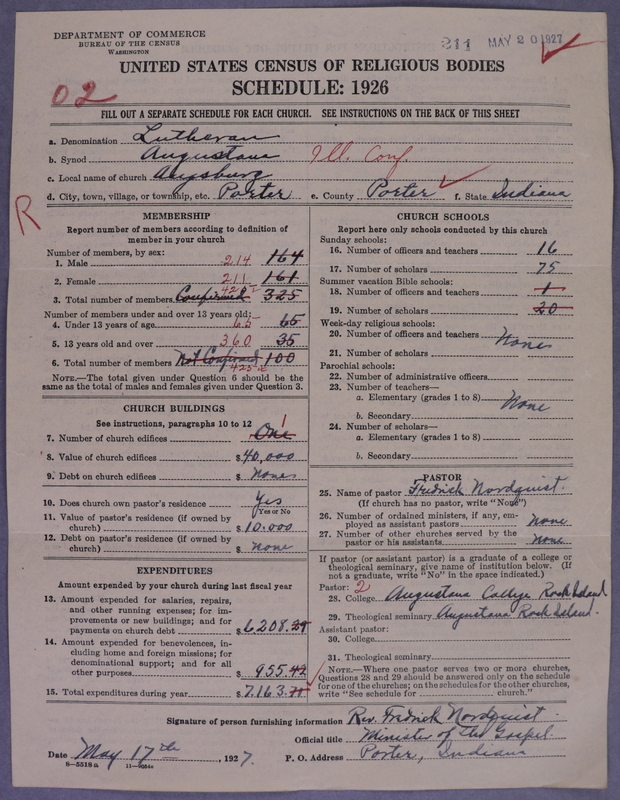 DEPARTMENT OF COMMERCE
BUREAU OF THE CENSUS
WASHINGTON
311 MAY 20 1927
UNITED STATES CENSUS OF RELIGIOUS BODIES
SCHEDULE: 1926
02
FILL OUT A SEPARATE SCHEDULE FOR EACH CHURCH. SEE INSTRUCTIONS ON THE BACK OF THIS SHEET
a. Denomination Lutheran
b. Synod Augustana Ill. Conf.
c. Local name of church Augsburg
d. City, town, village, or township, etc. Porter e. County Porter f. State Indiana
R
MEMBERSHIP
Report number of members according to definition of
member in your church
Number of members, by sex:
1. Male 214 164
2. Female 211 161
3. Total number of members Confirmed 425 325
Number of members under and over 13 years old:
4. Under 13 years of age 65 65
5. 13 years old and over 360 35
6. Total number of members Not Confirmed 100
425
NOTE.—The total given under Question 6 should be the
same as the total of males and females given under Question 3.
CHURCH BUILDINGS
See instructions, paragraphs 10 to 12
7. Number of church edifices One 1
8. Value of church edifices $40,000
9. Debt on church edifices $ None
10. Does church own pastor's residence Yes
Yes or No
11. Value of pastor's residence (if owned by
church) $10.000
12. Debt on pastor's residence (if owned by
church) $ None
EXPENDITURES
Amount expended by your church during last fiscal year
13. Amount expended for salaries, repairs,
and other running expenses; for im-
provements or new buildings; and for
payments on church debt $6,208.29
14. Amount expended for benevolences, in-
cluding home and foreign missions; for
denominational support; and for all
other purposes $955.42
15. Total expenditures during year $7,163.71
CHURCH SCHOOLS
Report here only schools conducted by this church
Sunday schools:
16. Number of officers and teachers 16
17. Number of scholars 75
Summer vacation Bible schools:
18. Number of officers and teachers 1
19. Number of scholars 20
Week-day religious schools:
20. Number of officers and teachers
None
21. Number of scholars
Parochial schools:
22. Number of administrative officers
23. Number of teachers—
a. Elementary (grades 1 to 8)
None
b. Secondary
24. Number of scholars—
a. Elementary (grades 1 to 8)
b. Secondary
PASTOR
25. Name of pastor Fredrick Nordquist
(If church has no pastor, write "None")
26. Number of ordained ministers, if any, em-
ployed as assistant pastors None
27. Number of other churches served by the
pastor or his assistants None
If pastor (or assistant pastor) is a graduate of a college or
theological seminary, give name of institution below. (If
not a graduate, write "No" in the space indicated.)
Pastor: 2
28. College Augustana College Rock Island
29. Theological seminary Augustana Rock Island.
Assistant pastor:
30. College
31. Theological seminary
NOTE.—Where one pastor serves two or more churches,
Questions 28 and 29 should be answered only on the schedule
for one of the churches; on the schedules for the other churches,
write "See schedule for church."
Signature of person furnishing information Rev. Fredrick Nordquist
Official title Minister of the Gospel
Date May 17th, 1927. P. O. Address Porter, Indiana